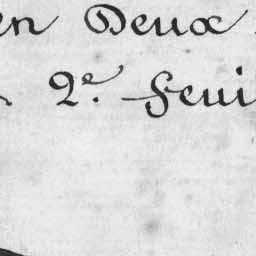 en Deux
2e. Feui